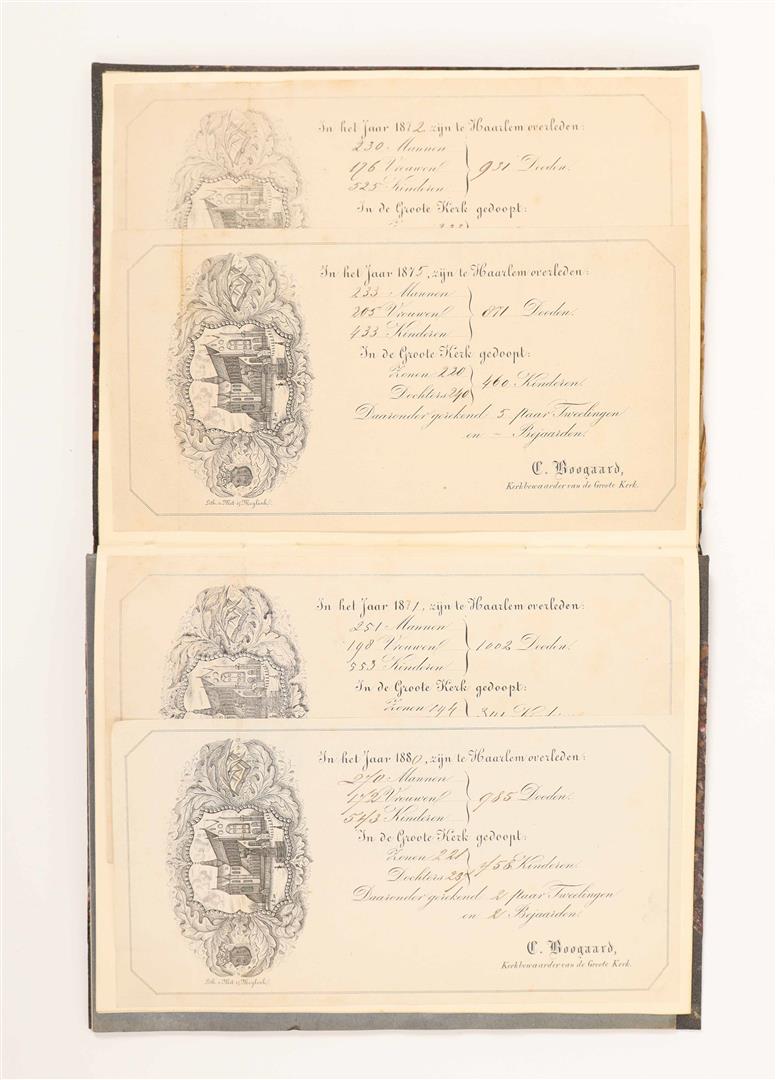 In het Jaar 1872, zijn te Haarlem overleden:
230 Mannen
176 Vrouwen
525 Kinderen
931 Dooden.
In de Groote Kerk gedoopt:
In het Jaar 1875, zijn te Haarlem overleden:
233 Mannen
205 Vrouwen
433 Kinderen
871 Dooden.
In de Groote Kerk gedoopt:
Zonen 220
Dochters 240
460 Kinderen
Daaronder gerekend 5 paar Tweelingen
en - Bejaarden.
C. Boogaard,
Kerkbewaarder van de Groote Kerk.
In het Jaar 1871, zijn te Haarlem overleden:
251 Mannen
198 Vrouwen
553 Kinderen
1002 Dooden.
In de Groote Kerk gedoopt:
Zonen 194
In het Jaar 1880, zijn te Haarlem overleden:
270 Mannen
172 Vrouwen
543 Kinderen
985 Dooden.
In de Groote Kerk gedoopt:
Zonen 221
Dochters 237
458 Kinderen
Daaronder gerekend 2 paar Tweelingen
en 2 Bejaarden.
C. Boogaard,
Kerkbewaarder van de Groote Kerk.